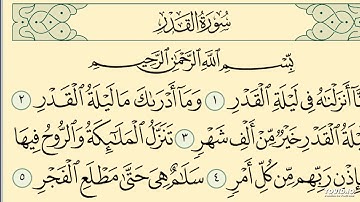 سُورَةُ الْقَدْرِ
بِسْمِ اللَّهِ الرَّحْمَٰنِ الرَّحِيمِ
نَّا أَنزَلْنَاهُ فِي لَيْلَةِ الْقَدْرِ ١ وَمَا أَدْرَاكَ مَا لَيْلَةُ الْقَدْرِ ٢
لَةُ الْقَدْرِ خَيْرٌ مِّنْ أَلْفِ شَهْرٍ ٣ تَنَزَّلُ الْمَلَائِكَةُ وَالرُّوحُ فِيهَا
بِإِذْنِ رَبِّهِم مِّن كُلِّ أَمْرٍ ٤ سَلَامٌ هِيَ حَتَّىٰ مَطْلَعِ الْفَجْرِ ٥